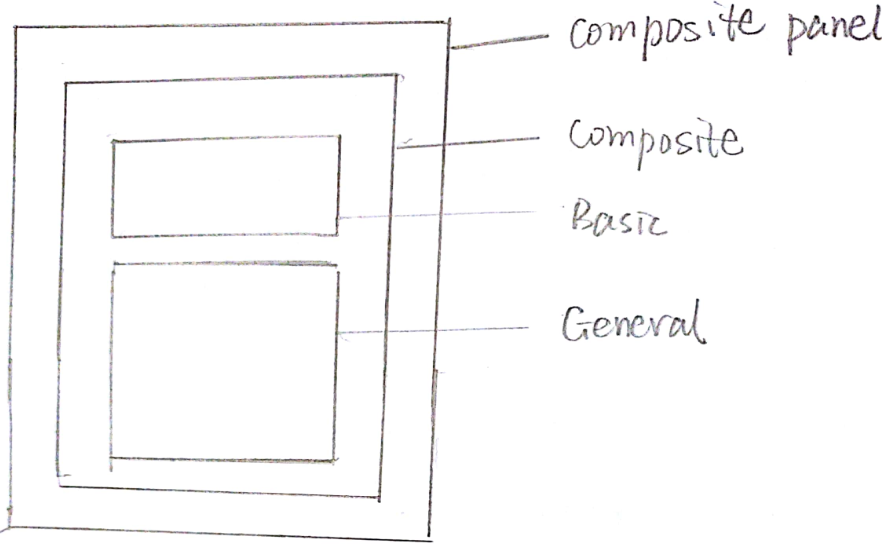 Composite panel
Composite
Basic
General